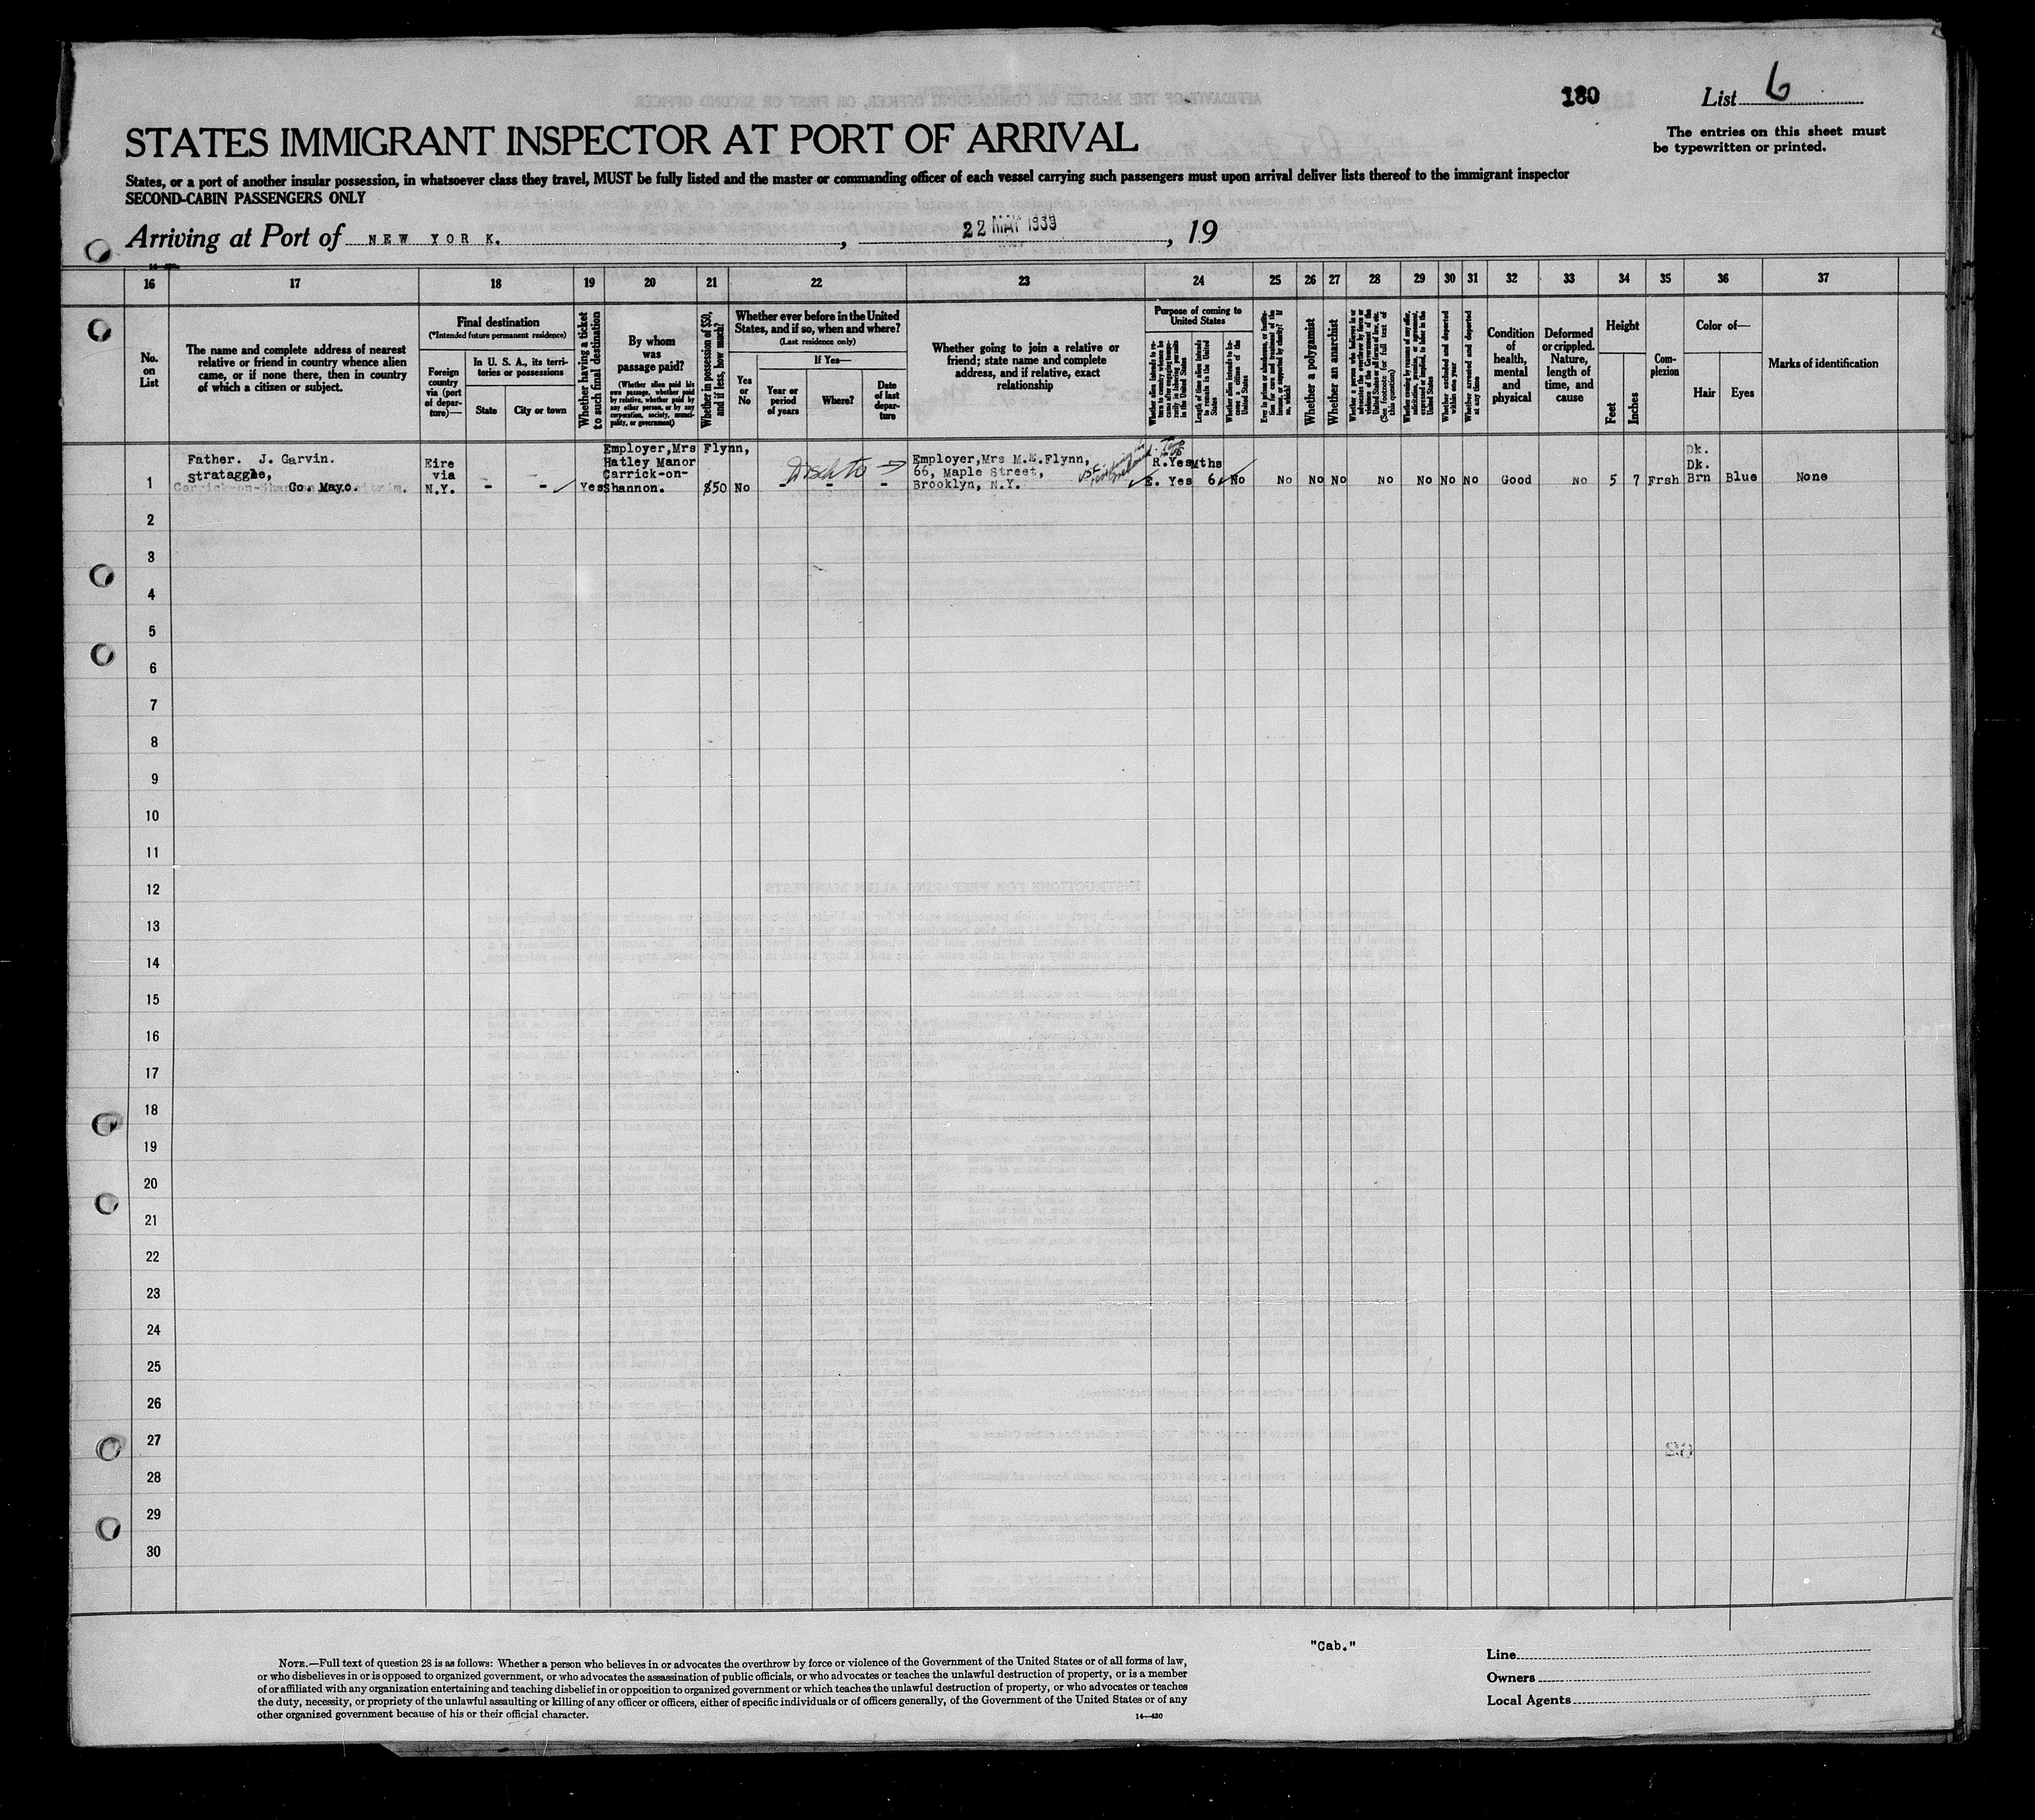 180
List 6
The entries on this sheet must
be typewritten or printed.
STATES IMMIGRANT INSPECTOR AT PORT OF ARRIVAL
States, or a port of another insular possession, in whatsoever class they travel, MUST be fully listed and the master or commanding officer of each vessel carrying such passengers must upon arrival deliver lists thereof to the immigrant inspector
SECOND-CABIN PASSENGERS ONLY
Arriving at Port of NEW YORK. , 22 MAY 1939 , 19
16 17 18 19 20 21 22 23 24 25 26 27 28 29 30 31 32 33 34 35 36 37
No.
on
List
The name and complete address of nearest
relative or friend in country whence alien
came, or if none there, then in country
of which a citizen or subject.
Final destination
(*Intended future permanent residence)
Foreign
country
via (port
of depar-
ture)—
In U. S. A., its terri-
tories or possessions
State
City or town
Whether having a ticket
to such final destination
By whom
was
passage paid?
(Whether alien paid his
own passage, whether paid
by relative, whether paid by
any other person, or by any
corporation, society, munici-
pality, or government)
Whether in possession of $50,
and if less, how much?
Whether ever before in the United
States, and if so, when and where?
(Last residence only)
Yes
or
No
If Yes—
Year or
period
of years
Where?
Date
of last
depar-
ture
Whether going to join a relative or
friend; state name and complete
address, and if relative, exact
relationship
Purpose of coming to
United States
Length of time alien intends
to remain in the United
States
Whether alien intends to be-
come a citizen of the
United States
Whether a polygamist
Whether an anarchist
Whether excluded and deported
within one year
Whether arrested and deported
at any time
Condition
of
health,
mental
and
physical
Deformed
or crippled.
Nature,
length of
time, and
cause
Height
Feet
Inches
Com-
plexion
Color of—
Hair
Eyes
Marks of identification
1
Father. J. Garvin.
Strataggle,
Co. Mayo.
Eire
via
N.Y.
-
-
Yes
Employer,Mrs Flynn,
Hatley Manor
Carrick-on-
Shannon.
$50
No
-
-
-
Employer,Mrs M.E.Flynn,
66, Maple Street,
Brooklyn, N.Y.
R.Yes Mths
E. Yes 6 No
No No No No No No No Good No 5 7 Frsh
Dk.
Dk.
Brn Blue None
2
3
4
5
6
7
8
9
10
11
12
13
14
15
16
17
18
19
20
21
22
23
24
25
26
27
28
29
30
"Cab."
NOTE.—Full text of question 28 is as follows: Whether a person who believes in or advocates the overthrow by force or violence of the Government of the United States or of all forms of law,
or who disbelieves in or is opposed to organized government, or who advocates the assassination of public officials, or who advocates or teaches the unlawful destruction of property, or is a member
of or affiliated with any organization entertaining and teaching disbelief in or opposition to organized government or which teaches the unlawful destruction of property, or who advocates or teaches
the duty, necessity, or propriety of the unlawful assaulting or killing of any officer or officers, either of specific individuals or of officers generally, of the Government of the United States or of any
other organized government because of his or their official character.
14—430
Line
Owners
Local Agents